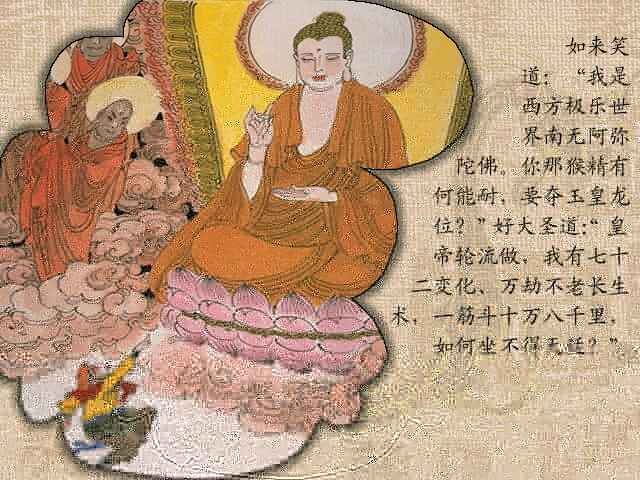 如来笑
道：“我是
西方极乐世
界南无阿弥
陀佛。你那猴精有
何能耐，要夺玉皇龙
位？”好大圣道：“皇
帝轮流做，我有七十
二变化、万劫不老长生
术，一筋斗十万八千里，
如何坐不得